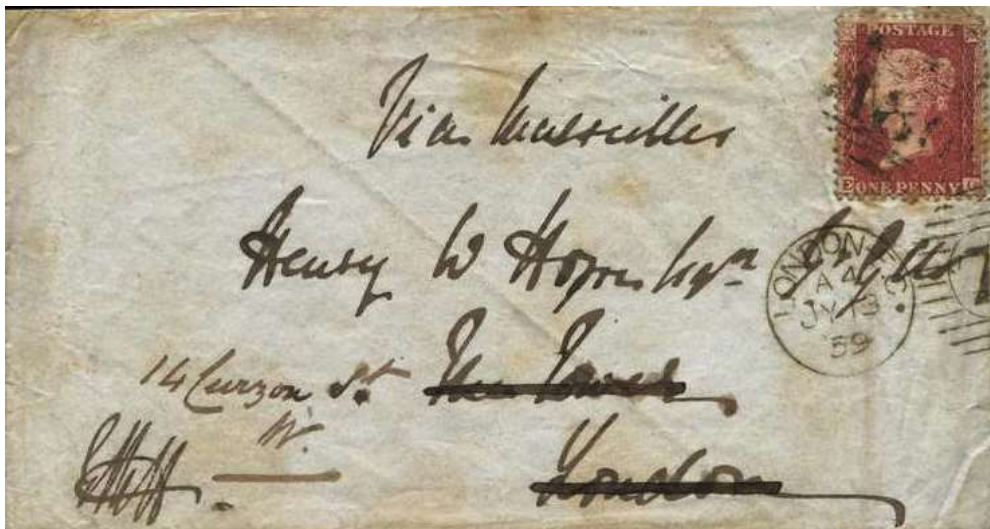 POSTAGE
E ONE PENNY G
Via Marseilles
Henry W Esqre G. Gds
LONDON
A 4
JY 13
59
14 Curzon St. The Tower
W.
London